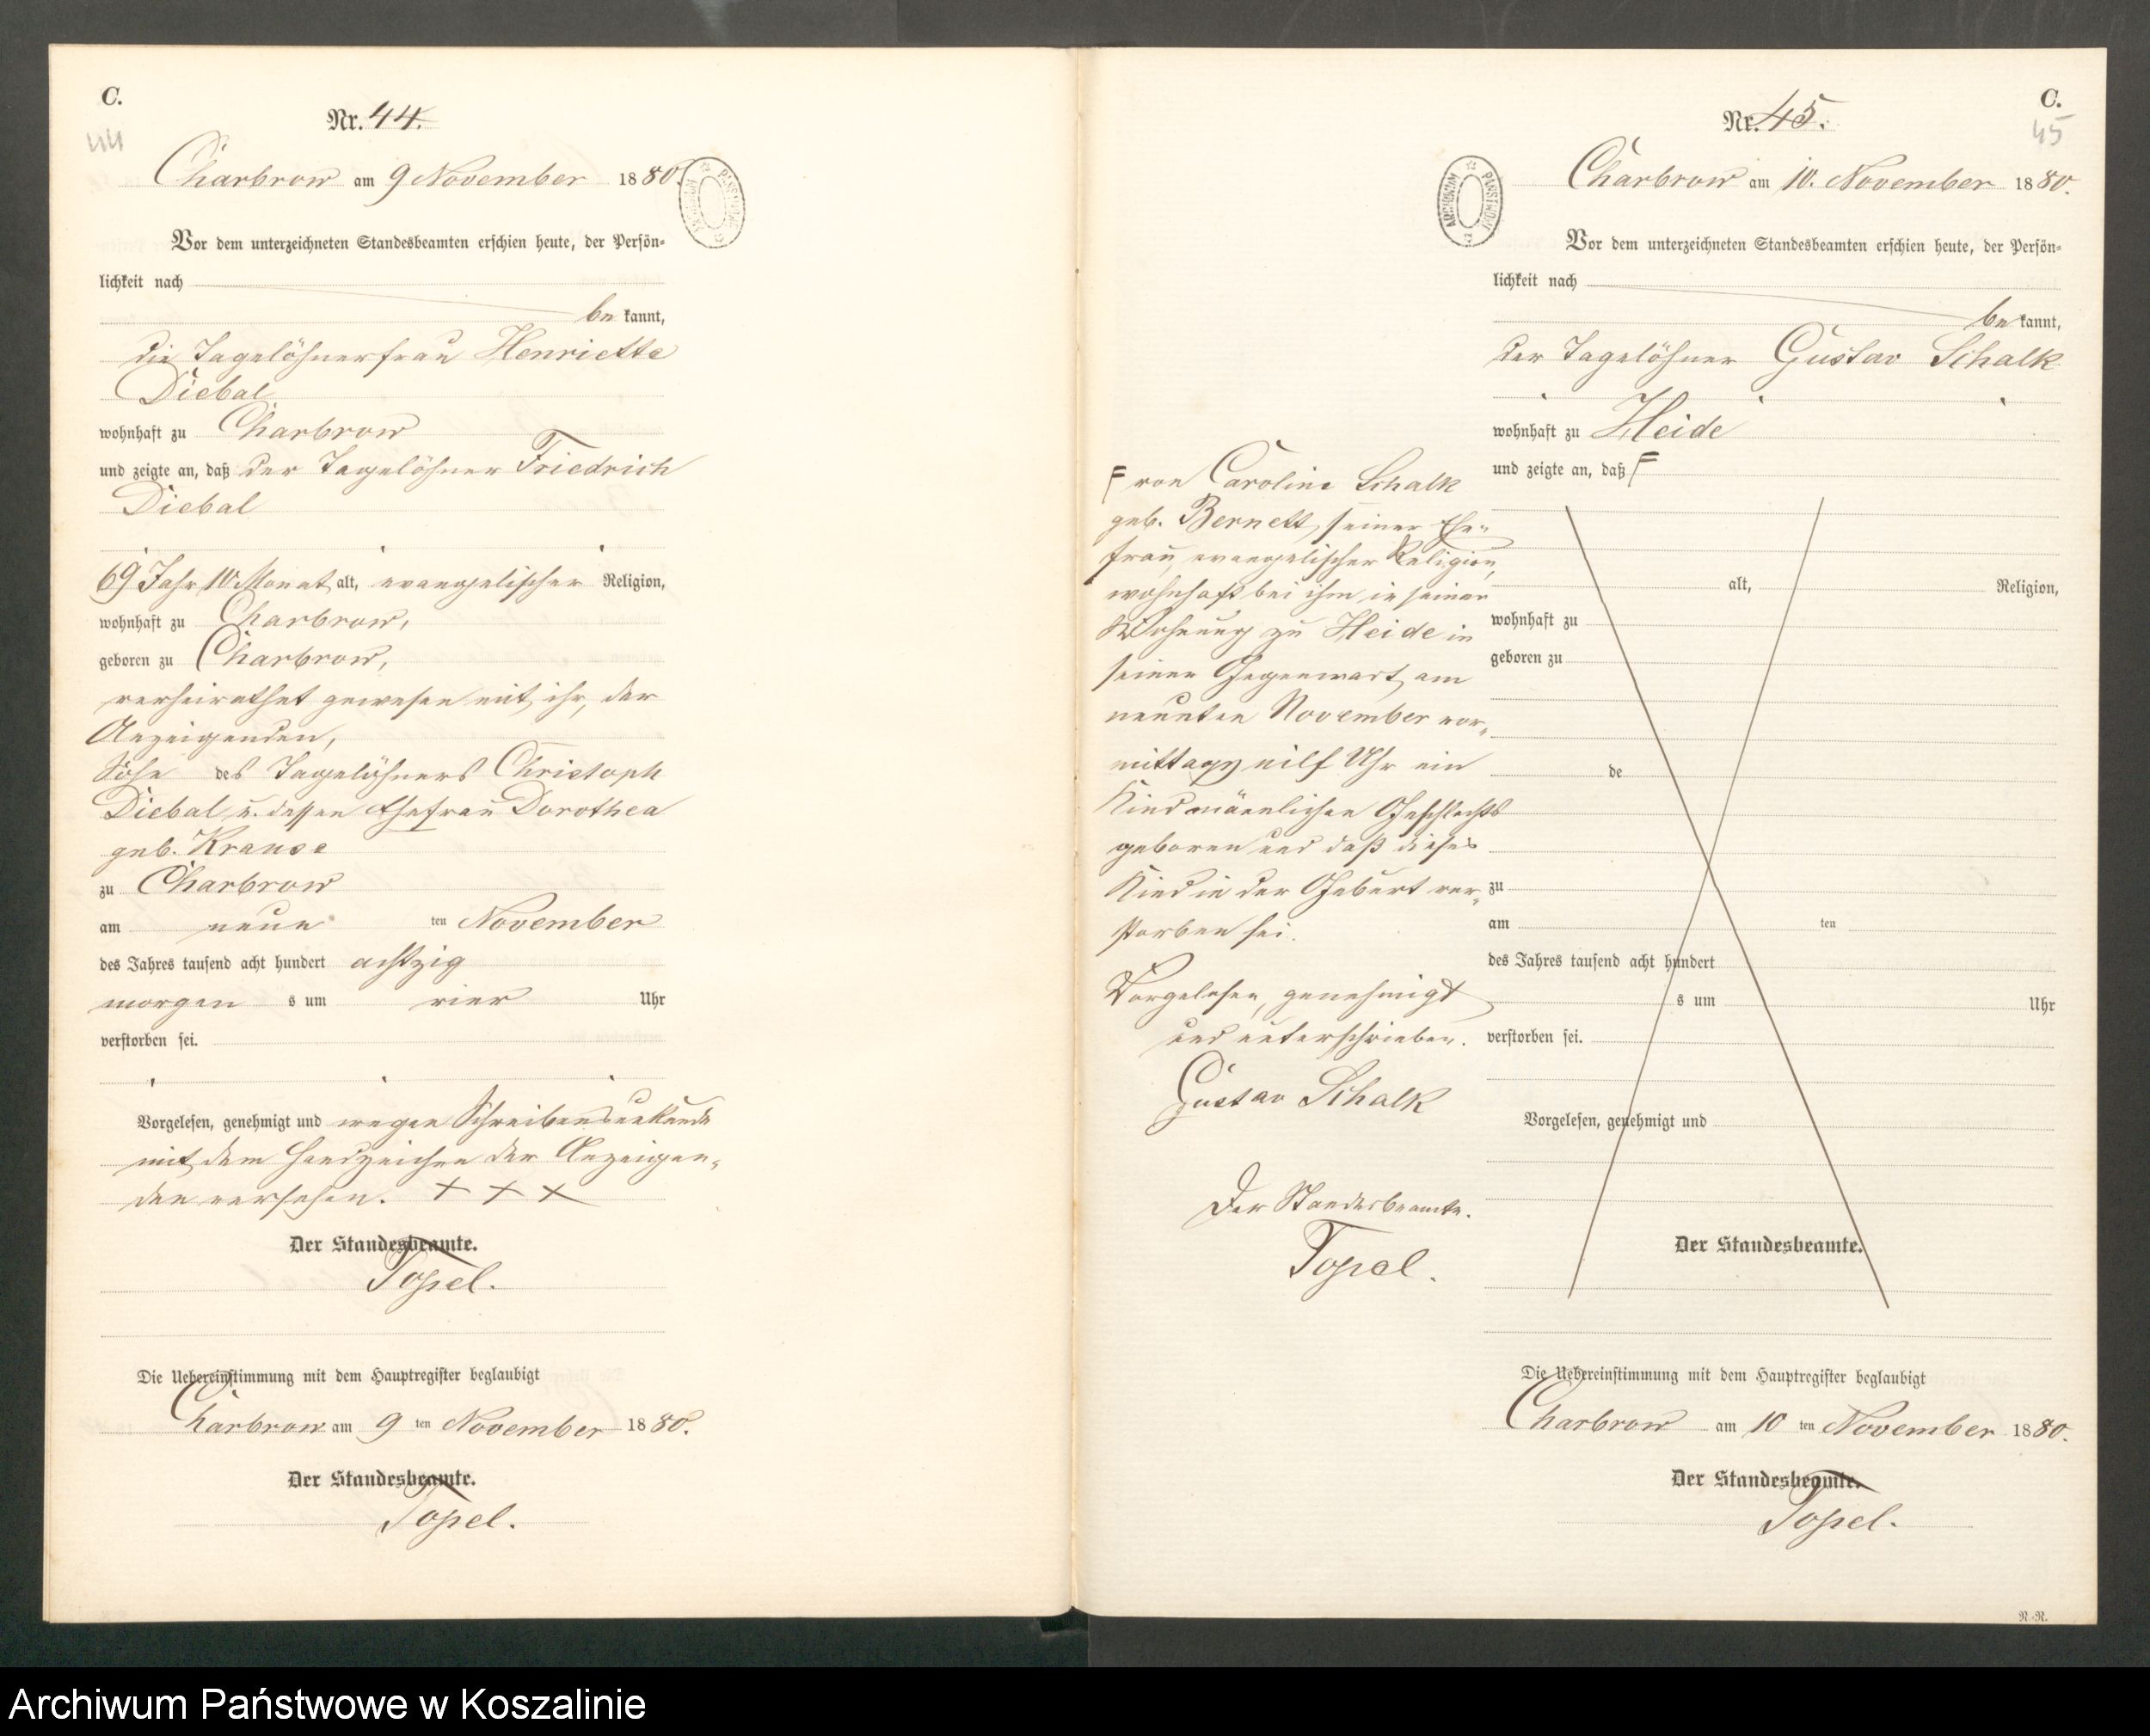 C.
44
Nr. 44.
Charbrow am 9 November 1880.
ARCHIWUM PAŃSTWOWE
Vor dem unterzeichneten Standesbeamten erschien heute, der Persön-
lichkeit nach
be kannt,
die Tagelöhnerfrau Henriette
Diebal
wohnhaft zu Charbrow
und zeigte an, daß der Tagelöhner Friedrich
Diebal
69 Jahr 10 Monat alt, evangelischer Religion,
wohnhaft zu Charbrow,
geboren zu Charbrow,
verheirathet gewesen mit ihr, der
Anzeigenden,
Sohn des Tagelöhners Christoph
Diebal u. dessen Ehefrau Dorothea
geb. Krause
zu Charbrow
am neun ten November
des Jahres tausend acht hundert achtzig
morgen s um vier Uhr
verstorben sei.
Vorgelesen, genehmigt und wegen Schreibensunkunde
mit dem Handzeichen der Anzeigen-
den versehen. + + +
Der Standesbeamte.
Topel.
Die Uebereinstimmung mit dem Hauptregister beglaubigt
Charbrow am 9 ten November 1880.
Der Standesbeamte.
Topel.
C.
45
Nr. 45.
Charbrow am 10. November 1880.
ARCHIWUM PAŃSTWOWE
Vor dem unterzeichneten Standesbeamten erschien heute, der Persön-
lichkeit nach
be kannt,
der Tagelöhner Gustav Schalk
wohnhaft zu Heide
und zeigte an, daß F
F von Caroline Schalk
geb. Bernett, seiner Ehe-
frau, evangelischer Religion,
wohnhaft bei ihm in seiner
Wohnung zu Heide in
seiner Gegenwart, am
neunten November vor-
mittags eilf Uhr ein
Kind männlichen Geschlechts
geboren und daß dieses
Kind in der Geburt ver-
storben sei.
Vorgelesen, genehmigt
und unterschrieben.
Gustav Schalk
Der Standesbeamte.
Topel.
alt, Religion,
wohnhaft zu
geboren zu
de
zu
am ten
des Jahres tausend acht hundert
s um Uhr
verstorben sei.
Vorgelesen, genehmigt und
Der Standesbeamte.
Die Uebereinstimmung mit dem Hauptregister beglaubigt
Charbrow am 10 ten November 1880.
Der Standesbeamte.
Topel.
N.-N.
Archiwum Państwowe w Koszalinie